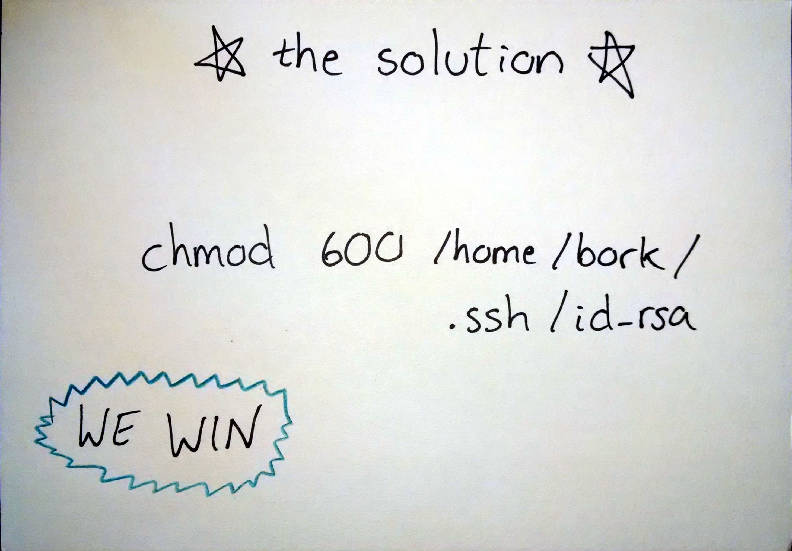 the solution
chmod 600 /home/bork/
.ssh/id_rsa
WE WIN